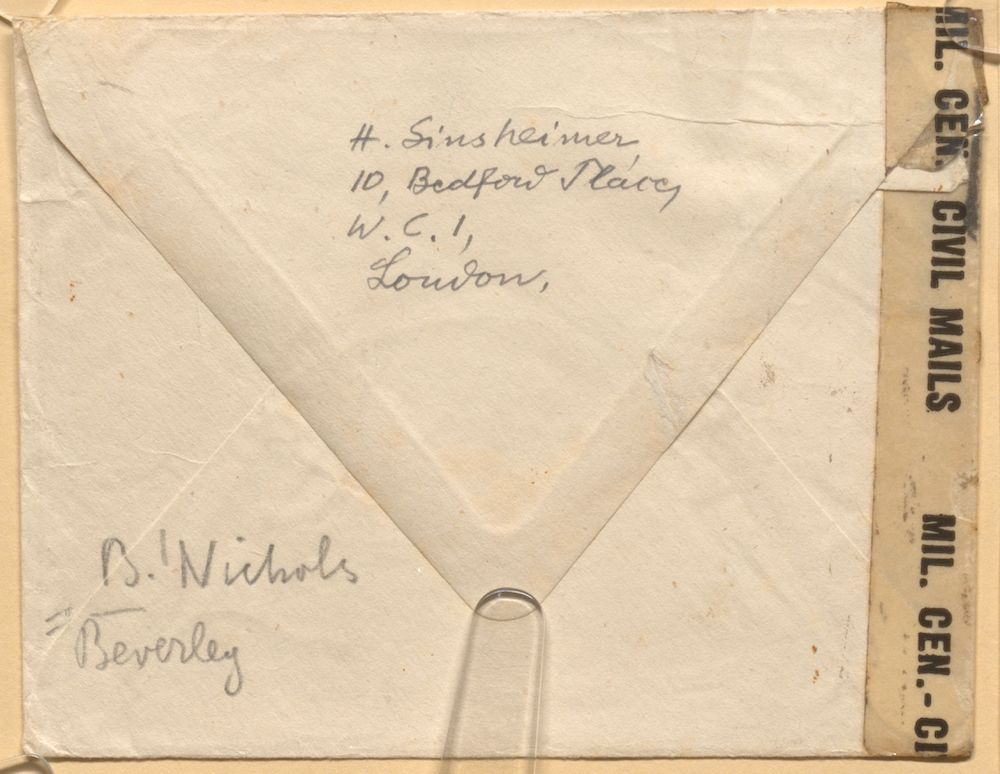 H. Sinsheimer,
10, Bedford Place,
W.C.1,
London,
B. Nichols
= Beverley
MIL. CEN. CIVIL MAILS MIL. CEN.- CI